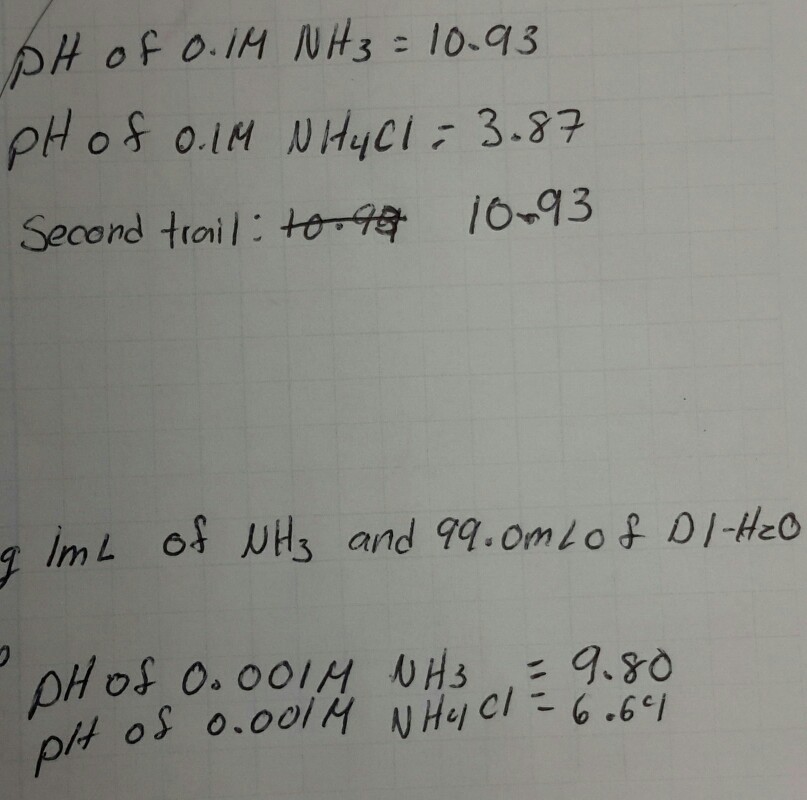 pH of 0.1M NH3 = 10.93
pH of 0.1M NH4Cl = 3.87
Second trail: 10.93
g 1mL of NH3 and 99.0mL of DI-H2O
pH of 0.001M NH3 = 9.80
pH of 0.001M NH4Cl = 6.64